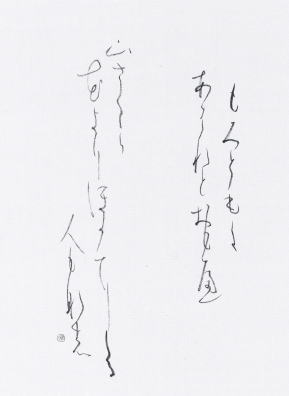 もろともに
あはれとおもへ
山さくら
花よりほかにしる
人もなし